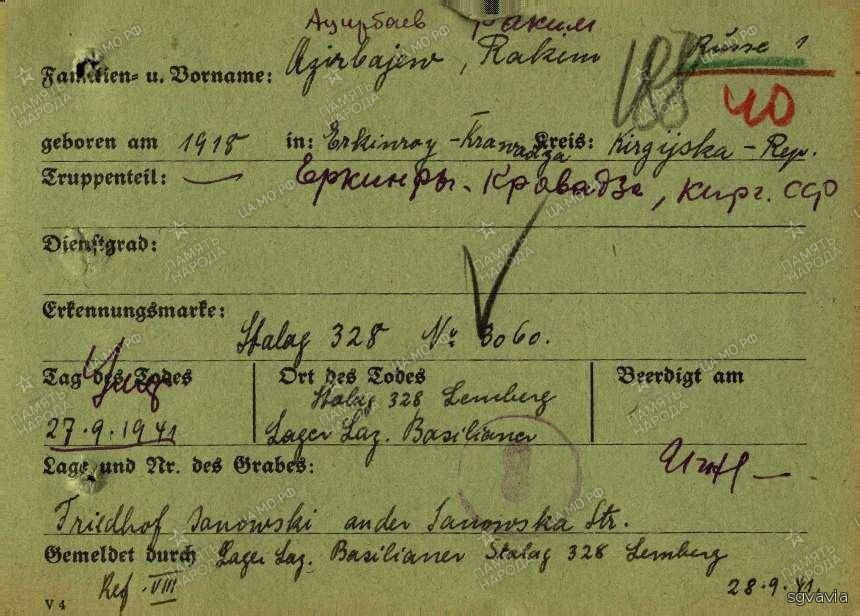 Азирбаев Раким
Familien- u. Vorname: Azirbajew, Rakem Russe 1
188 40
geboren am 1918 in: Erkinroy-Krawadza Kreis: Kirgijska-Rep.
Truppenteil: — Еркинры-Кровадзе, Кирг. ССР
Dienstgrad:
Erkennungsmarke:
Stalag 328 № 3060.
Tag des Todes Ort des Todes Beerdigt am
Stalag 328 Lemberg
27.9.1941 Lager Laz. Basilianer
Lage und Nr. des Grabes:
Friedhof Janowski an der Janowska Str.
Gemeldet durch Lager Laz. Basilianer Stalag 328 Lemberg
Ref. VIII 28.9.41.
V 4
ПАМЯТЬ НАРОДА
ЦАМО.РФ
sgvavia